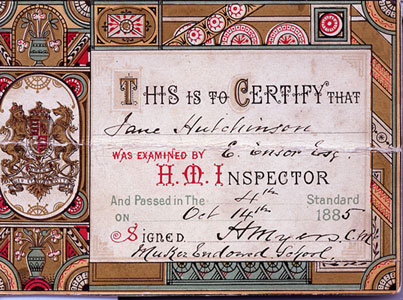 THIS IS TO CERTIFY THAT
Jane Hutchinson
WAS EXAMINED BY E. Ensor Esq.
H.M. INSPECTOR
And Passed in The 4th Standard
ON Oct 14th 1885
SIGNED H Myers, C.M.
Muker Endowed School.